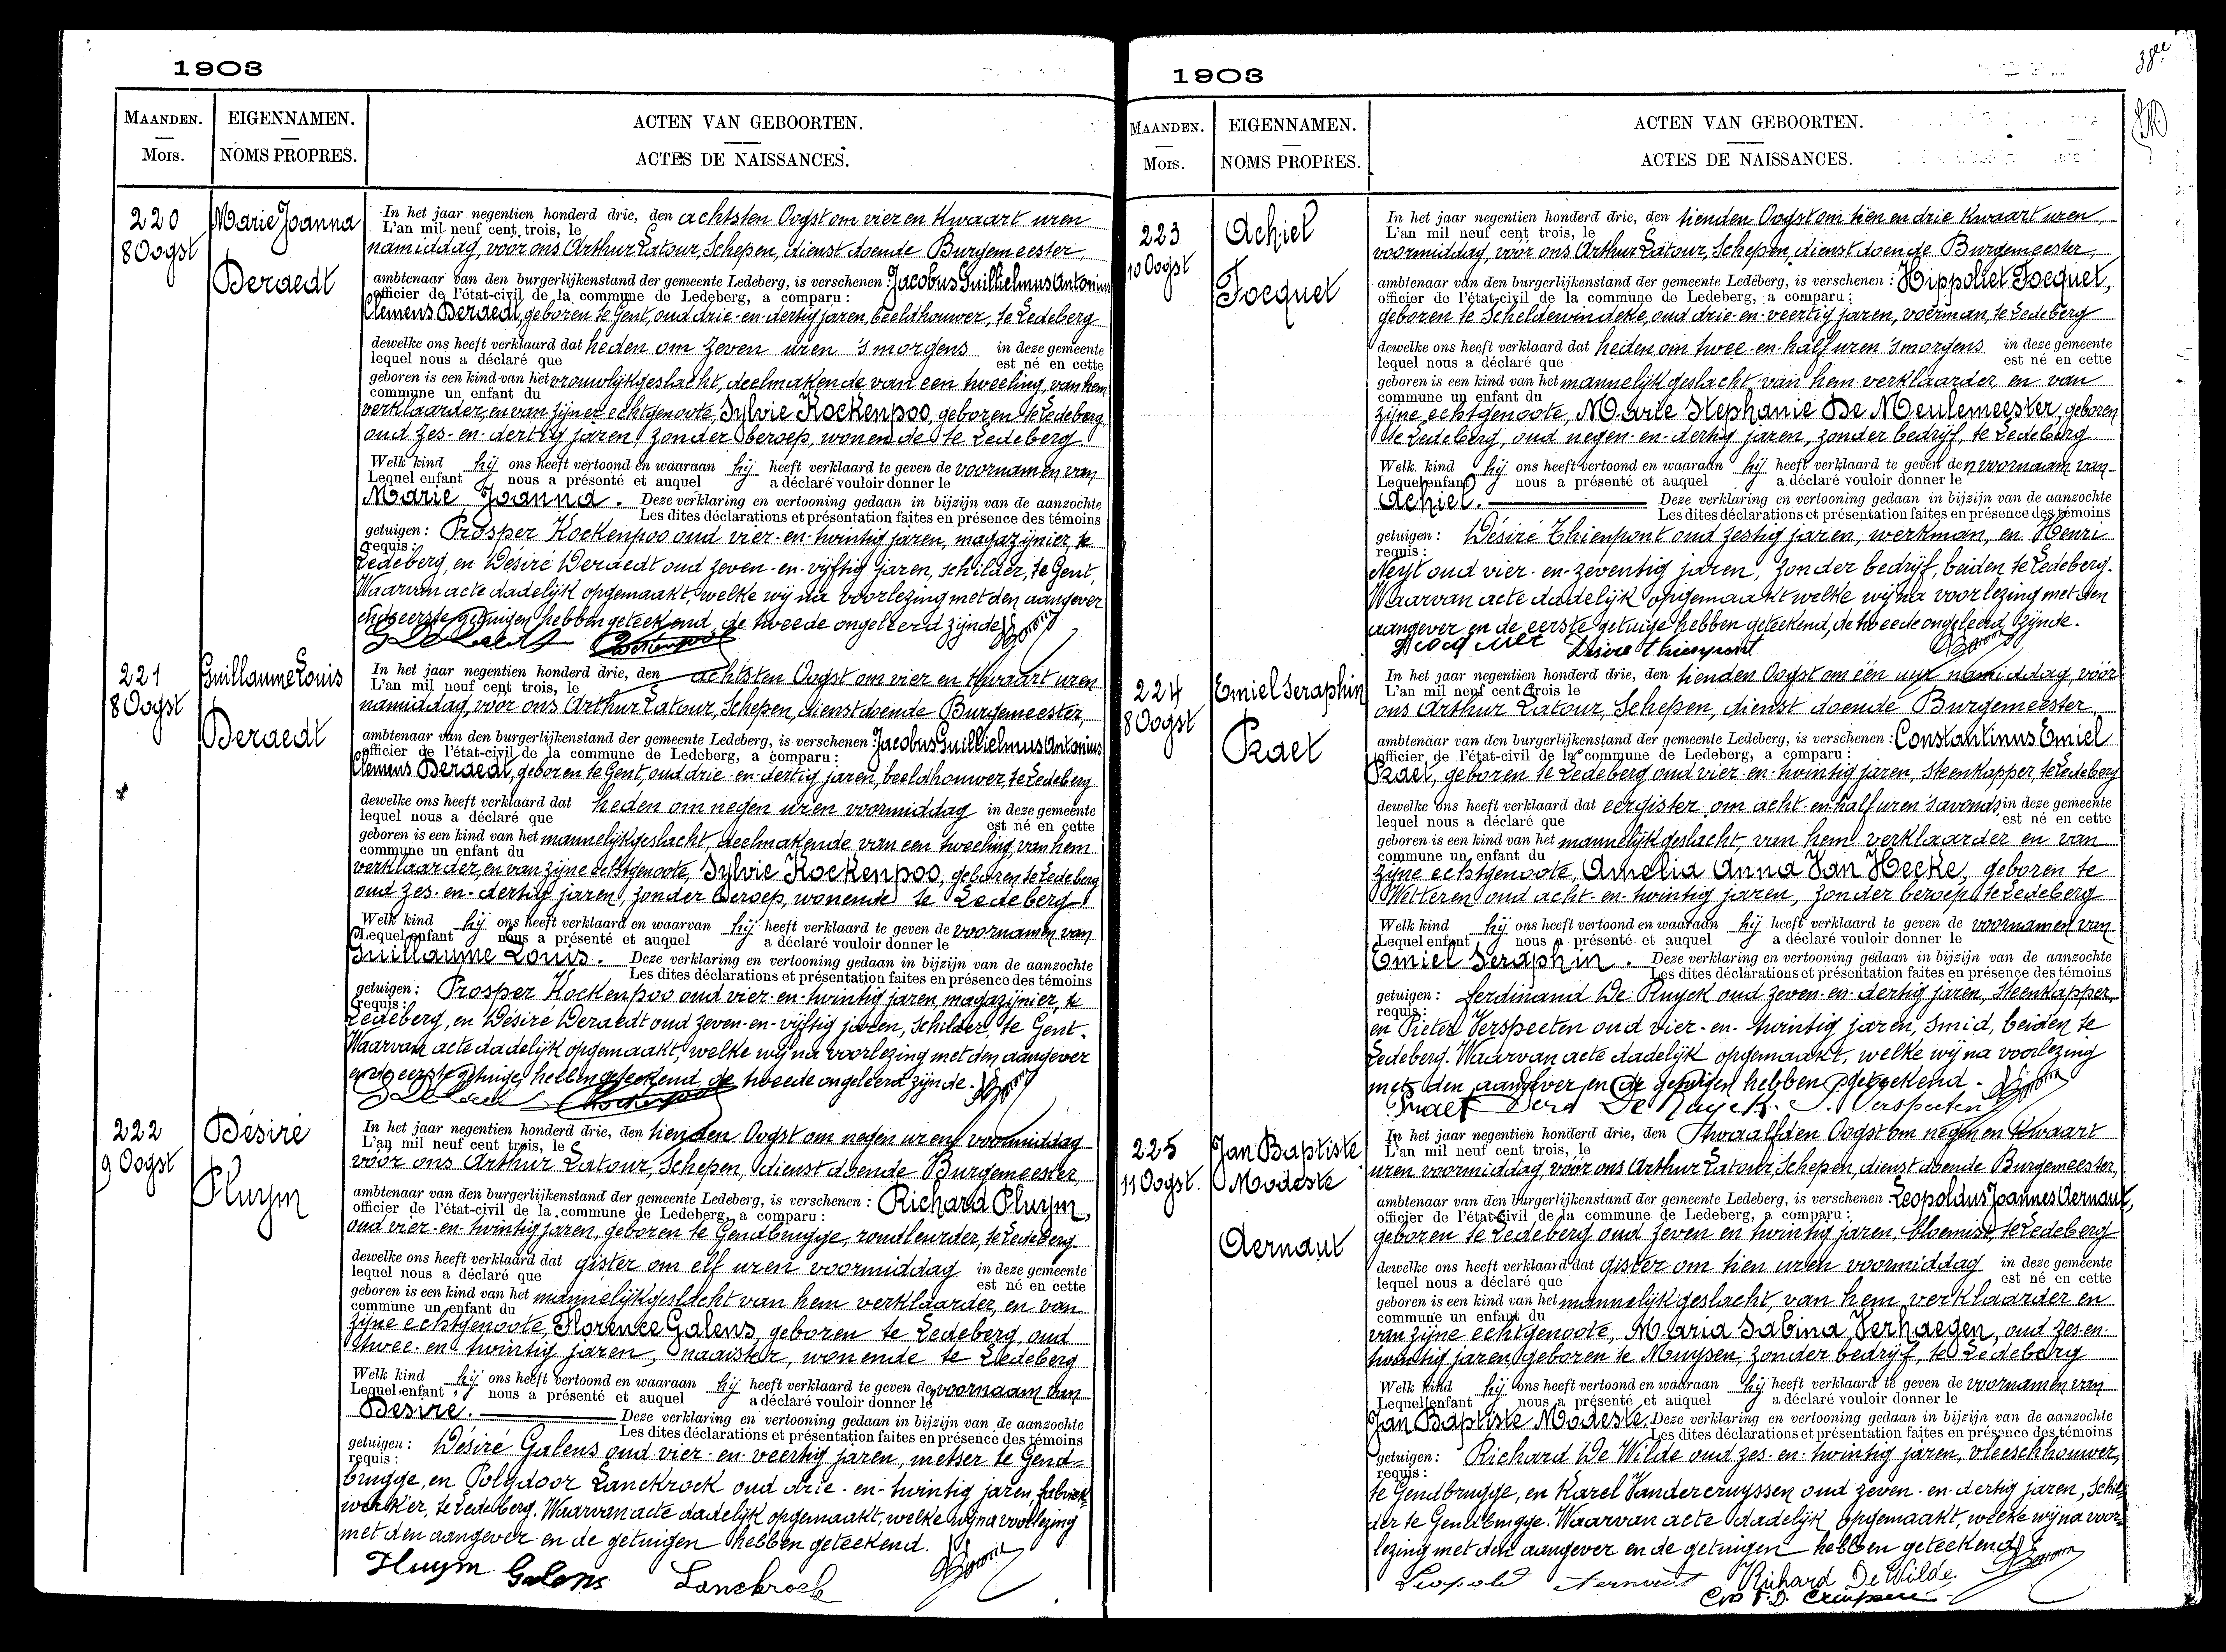 1903
MAANDEN.
Mois.
EIGENNAMEN.
NOMS PROPRES.
ACTEN VAN GEBOORTEN.
ACTES DE NAISSANCES.
220
8 Oogst
Marie Joanna
Deraedt
In het jaar negentien honderd drie, den achtsten Oogst om vier en kwaart uren
L'an mil neuf cent trois, le
namiddag, vóór ons Arthur Latour, Schepen, dienst doende Burgemeester,
ambtenaar van den burgerlijkenstand der gemeente Ledeberg, is verschenen: Jacobus Guillielmus Antonius
officier de l'état-civil de la commune de Ledeberg, a comparu:
Clemens Deraedt, geboren te Gent, oud drie-en-dertig jaren, beeldhouwer, te Ledeberg
dewelke ons heeft verklaard dat heden om zeven uren 's morgens in deze gemeente
lequel nous a déclaré que est né en cette
geboren is een kind van het vrouwlijkgeslacht, deelmakende van een tweeling, van hem
commune un enfant du
verklaarder, en van zijne echtgenoote, Sylvie Kockenpoo, geboren te Ledeberg,
oud zes-en-dertig jaren, zonder beroep, wonende te Ledeberg
Welk kind hij ons heeft vertoond en waaraan hij heeft verklaard te geven de voornamen van
Lequel enfant nous a présenté et auquel a déclaré vouloir donner le
Marie Joanna. Deze verklaring en vertooning gedaan in bijzijn van de aanzochte
Les dites déclarations et présentation faites en présence des témoins
getuigen: Prosper Kockenpoo oud vier-en-twintig jaren, magazijnier, te
requis:
Ledeberg, en Désiré Deraedt oud zeven-en-vijftig jaren, schilder, te Gent,
Waarvan acte dadelijk opgemaakt, welke wij na voorlezing met den aangever
en de eerste getuigen hebben geteekend, de tweede ongeleerd zijnde.
221
8 Oogst
Guillaume Louis
Deraedt
In het jaar negentien honderd drie, den achtsten Oogst om vier en kwaart uren
L'an mil neuf cent trois, le
namiddag, vóór ons Arthur Latour, Schepen, dienst doende Burgemeester,
ambtenaar van den burgerlijkenstand der gemeente Ledeberg, is verschenen: Jacobus Guillielmus Antonius
officier de l'état-civil de la commune de Ledeberg, a comparu:
Clemens Deraedt, geboren te Gent, oud drie-en-dertig jaren, beeldhouwer, te Ledeberg
dewelke ons heeft verklaard dat heden om negen uren voormiddag in deze gemeente
lequel nous a déclaré que est né en cette
geboren is een kind van het mannelijkgeslacht, deelmakende van een tweeling, van hem
commune un enfant du
verklaarder, en van zijne echtgenoote, Sylvie Kockenpoo, geboren te Ledeberg
oud zes-en-dertig jaren, zonder beroep, wonende te Ledeberg
Welk kind hij ons heeft verklaard en waarvan hij heeft verklaard te geven de voornamen van
Lequel enfant nous a présenté et auquel a déclaré vouloir donner le
Guillaume Louis. Deze verklaring en vertooning gedaan in bijzijn van de aanzochte
Les dites déclarations et présentation faites en présence des témoins
getuigen: Prosper Kockenpoo oud vier-en-twintig jaren, magazijnier, te
requis:
Ledeberg, en Désiré Deraedt oud zeven-en-vijftig jaren, schilder, te Gent.
Waarvan acte dadelijk opgemaakt, welke wij na voorlezing met den aangever
en de eerste getuige hebben geteekend, de tweede ongeleerd zijnde.
222
9 Oogst
Désiré
Pluym
In het jaar negentien honderd drie, den tienden Oogst om negen uren voormiddag
L'an mil neuf cent trois, le
vóór ons Arthur Latour, Schepen, dienst doende Burgemeester,
ambtenaar van den burgerlijkenstand der gemeente Ledeberg, is verschenen: Richard Pluym,
officier de l'état-civil de la commune de Ledeberg, a comparu:
oud vier-en-twintig jaren, geboren te Gendbrugge, rondleurder, te Ledeberg.
dewelke ons heeft verklaard dat gister om elf uren voormiddag in deze gemeente
lequel nous a déclaré que est né en cette
geboren is een kind van het mannelijkgeslacht van hem verklaarder, en van
commune un enfant du
zijne echtgenoote, Florence Galens, geboren te Ledeberg, oud
twee-en twintig jaren, naaister, wonende te Ledeberg
Welk kind hij ons heeft vertoond en waaraan hij heeft verklaard te geven den voornaam van
Lequel enfant nous a présenté et auquel a déclaré vouloir donner le
Désiré. Deze verklaring en vertooning gedaan in bijzijn van de aanzochte
Les dites déclarations et présentation faites en présence des témoins
getuigen: Désiré Galens oud vier-en-veertig jaren, metser te Gend-
requis:
brugge, en Polydoor Lanckrock oud drie-en-twintig jaren, fabriek-
werker, te Ledeberg. Waarvan acte dadelijk opgemaakt, welke wij na voorlezing
met den aangever en de getuigen hebben geteekend.
Pluym Galens Lanckrock
1903
38ee
MAANDEN.
Mois.
EIGENNAMEN.
NOMS PROPRES.
ACTEN VAN GEBOORTEN.
ACTES DE NAISSANCES.
223
10 Oogst
Achiel
Focquet
In het jaar negentien honderd drie, den tienden Oogst om tien en drie kwaart uren
L'an mil neuf cent trois, le
voormiddag, vóór ons Arthur Latour, Schepen, dienst doende Burgemeester,
ambtenaar van den burgerlijkenstand der gemeente Ledeberg, is verschenen: Hippoliet Focquet,
officier de l'état-civil de la commune de Ledeberg, a comparu:
geboren te Scheldewindeke, oud drie-en-veertig jaren, voerman, te Ledeberg
dewelke ons heeft verklaard dat heden om twee-en-half uren 's morgens in deze gemeente
lequel nous a déclaré que est né en cette
geboren is een kind van het mannelijk geslacht van hem verklaarder, en van
commune un enfant du
zijne echtgenoote, Marie Stephanie De Meulemeester, geboren
te Ledeberg, oud negen-en-dertig jaren, zonder bedrijf, te Ledeberg.
Welk kind hij ons heeft vertoond en waaraan hij heeft verklaard te geven den voornaam van
Lequel enfant nous a présenté et auquel a déclaré vouloir donner le
Achiel. Deze verklaring en vertooning gedaan in bijzijn van de aanzochte
Les dites déclarations et présentation faites en présence des témoins
getuigen: Désiré Thienpont oud zestig jaren, werkman, en Henri
requis:
Neyt oud vier-en-zeventig jaren, zonder bedrijf, beiden te Ledeberg.
Waarvan acte dadelijk opgemaakt welke wij na voorlezing met den
aangever en de eerste getuige hebben geteekend, de tweede ongeleerd zijnde.
Désiré Thienpont
224
8 Oogst
Emiel Seraphin
Praet
In het jaar negentien honderd drie, den tienden Oogst om één uur namiddag, vóór
L'an mil neuf cent trois le
ons Arthur Latour, Schepen, dienst doende Burgemeester
ambtenaar van den burgerlijkenstand der gemeente Ledeberg, is verschenen: Constantinus Emiel
officier de l'état-civil de la commune de Ledeberg, a comparu:
Praet, geboren te Ledeberg oud vier-en-twintig jaren, steenkapper, te Ledeberg
dewelke ons heeft verklaard dat eergister om acht-en-half uren 's avonds in deze gemeente
lequel nous a déclaré que est né en cette
geboren is een kind van het mannelijkgeslacht, van hem verklaarder en van
commune un enfant du
zijne echtgenoote, Amelia Anna Van Hecke, geboren te
Wetteren oud acht-en-twintig jaren, zonder beroep te Ledeberg
Welk kind hij ons heeft vertoond en waaraan hij heeft verklaard te geven de voornamen van
Lequel enfant nous a présenté et auquel a déclaré vouloir donner le
Emiel Seraphin. Deze verklaring en vertooning gedaan in bijzijn van de aanzochte
Les dites déclarations et présentation faites en présence des témoins
getuigen: Ferdinand De Ruyck oud zeven-en-dertig jaren, steenkapper,
requis:
en Pieter Verspeeten oud vier-en-twintig jaren, smid, beiden te
Ledeberg. Waarvan acte dadelijk opgemaakt, welke wij na voorlezing
met den aangever en de getuigen hebben geteekend.
Praet Ferd De Ruyck. P. Verspeeten
225
11 Oogst.
Jan Baptiste
Modeste
Aernaut
In het jaar negentien honderd drie, den Twaalfden Oogst om negen en kwaart
L'an mil neuf cent trois, le
uren voormiddag, vóór ons Arthur Latour, Schepen, dienst doende Burgemeester,
ambtenaar van den burgerlijkenstand der gemeente Ledeberg, is verschenen: Leopoldus Joannes Aernaut,
officier de l'état-civil de la commune de Ledeberg, a comparu:
geboren te Ledeberg oud zeven en twintig jaren, bloemist, te Ledeberg
dewelke ons heeft verklaard dat gister om tien uren voormiddag in deze gemeente
lequel nous a déclaré que est né en cette
geboren is een kind van het mannelijk geslacht, van hem verklaarder en
commune un enfant du
van zijne echtgenoote, Maria Sabina Verhaegen, oud zes-en-
twintig jaren, geboren te Muysen, zonder bedrijf, te Ledeberg
Welk kind hij ons heeft vertoond en waaraan hij heeft verklaard te geven de voornamen van
Lequel enfant nous a présenté et auquel a déclaré vouloir donner le
Jan Baptiste Modeste. Deze verklaring en vertooning gedaan in bijzijn van de aanzochte
Les dites déclarations et présentation faites en présence des témoins
getuigen: Richard De Wilde oud zes-en-twintig jaren, vleeschhouwer,
requis:
te Gendbrugge, en Karel Vandercruyssen oud zeven-en-dertig jaren, schil-
der te Gendbrugge. Waarvan acte dadelijk opgemaakt, welke wij na voor-
lezing met den aangever en de getuigen hebben geteekend
Leopold Aernaut Richard De Wilde